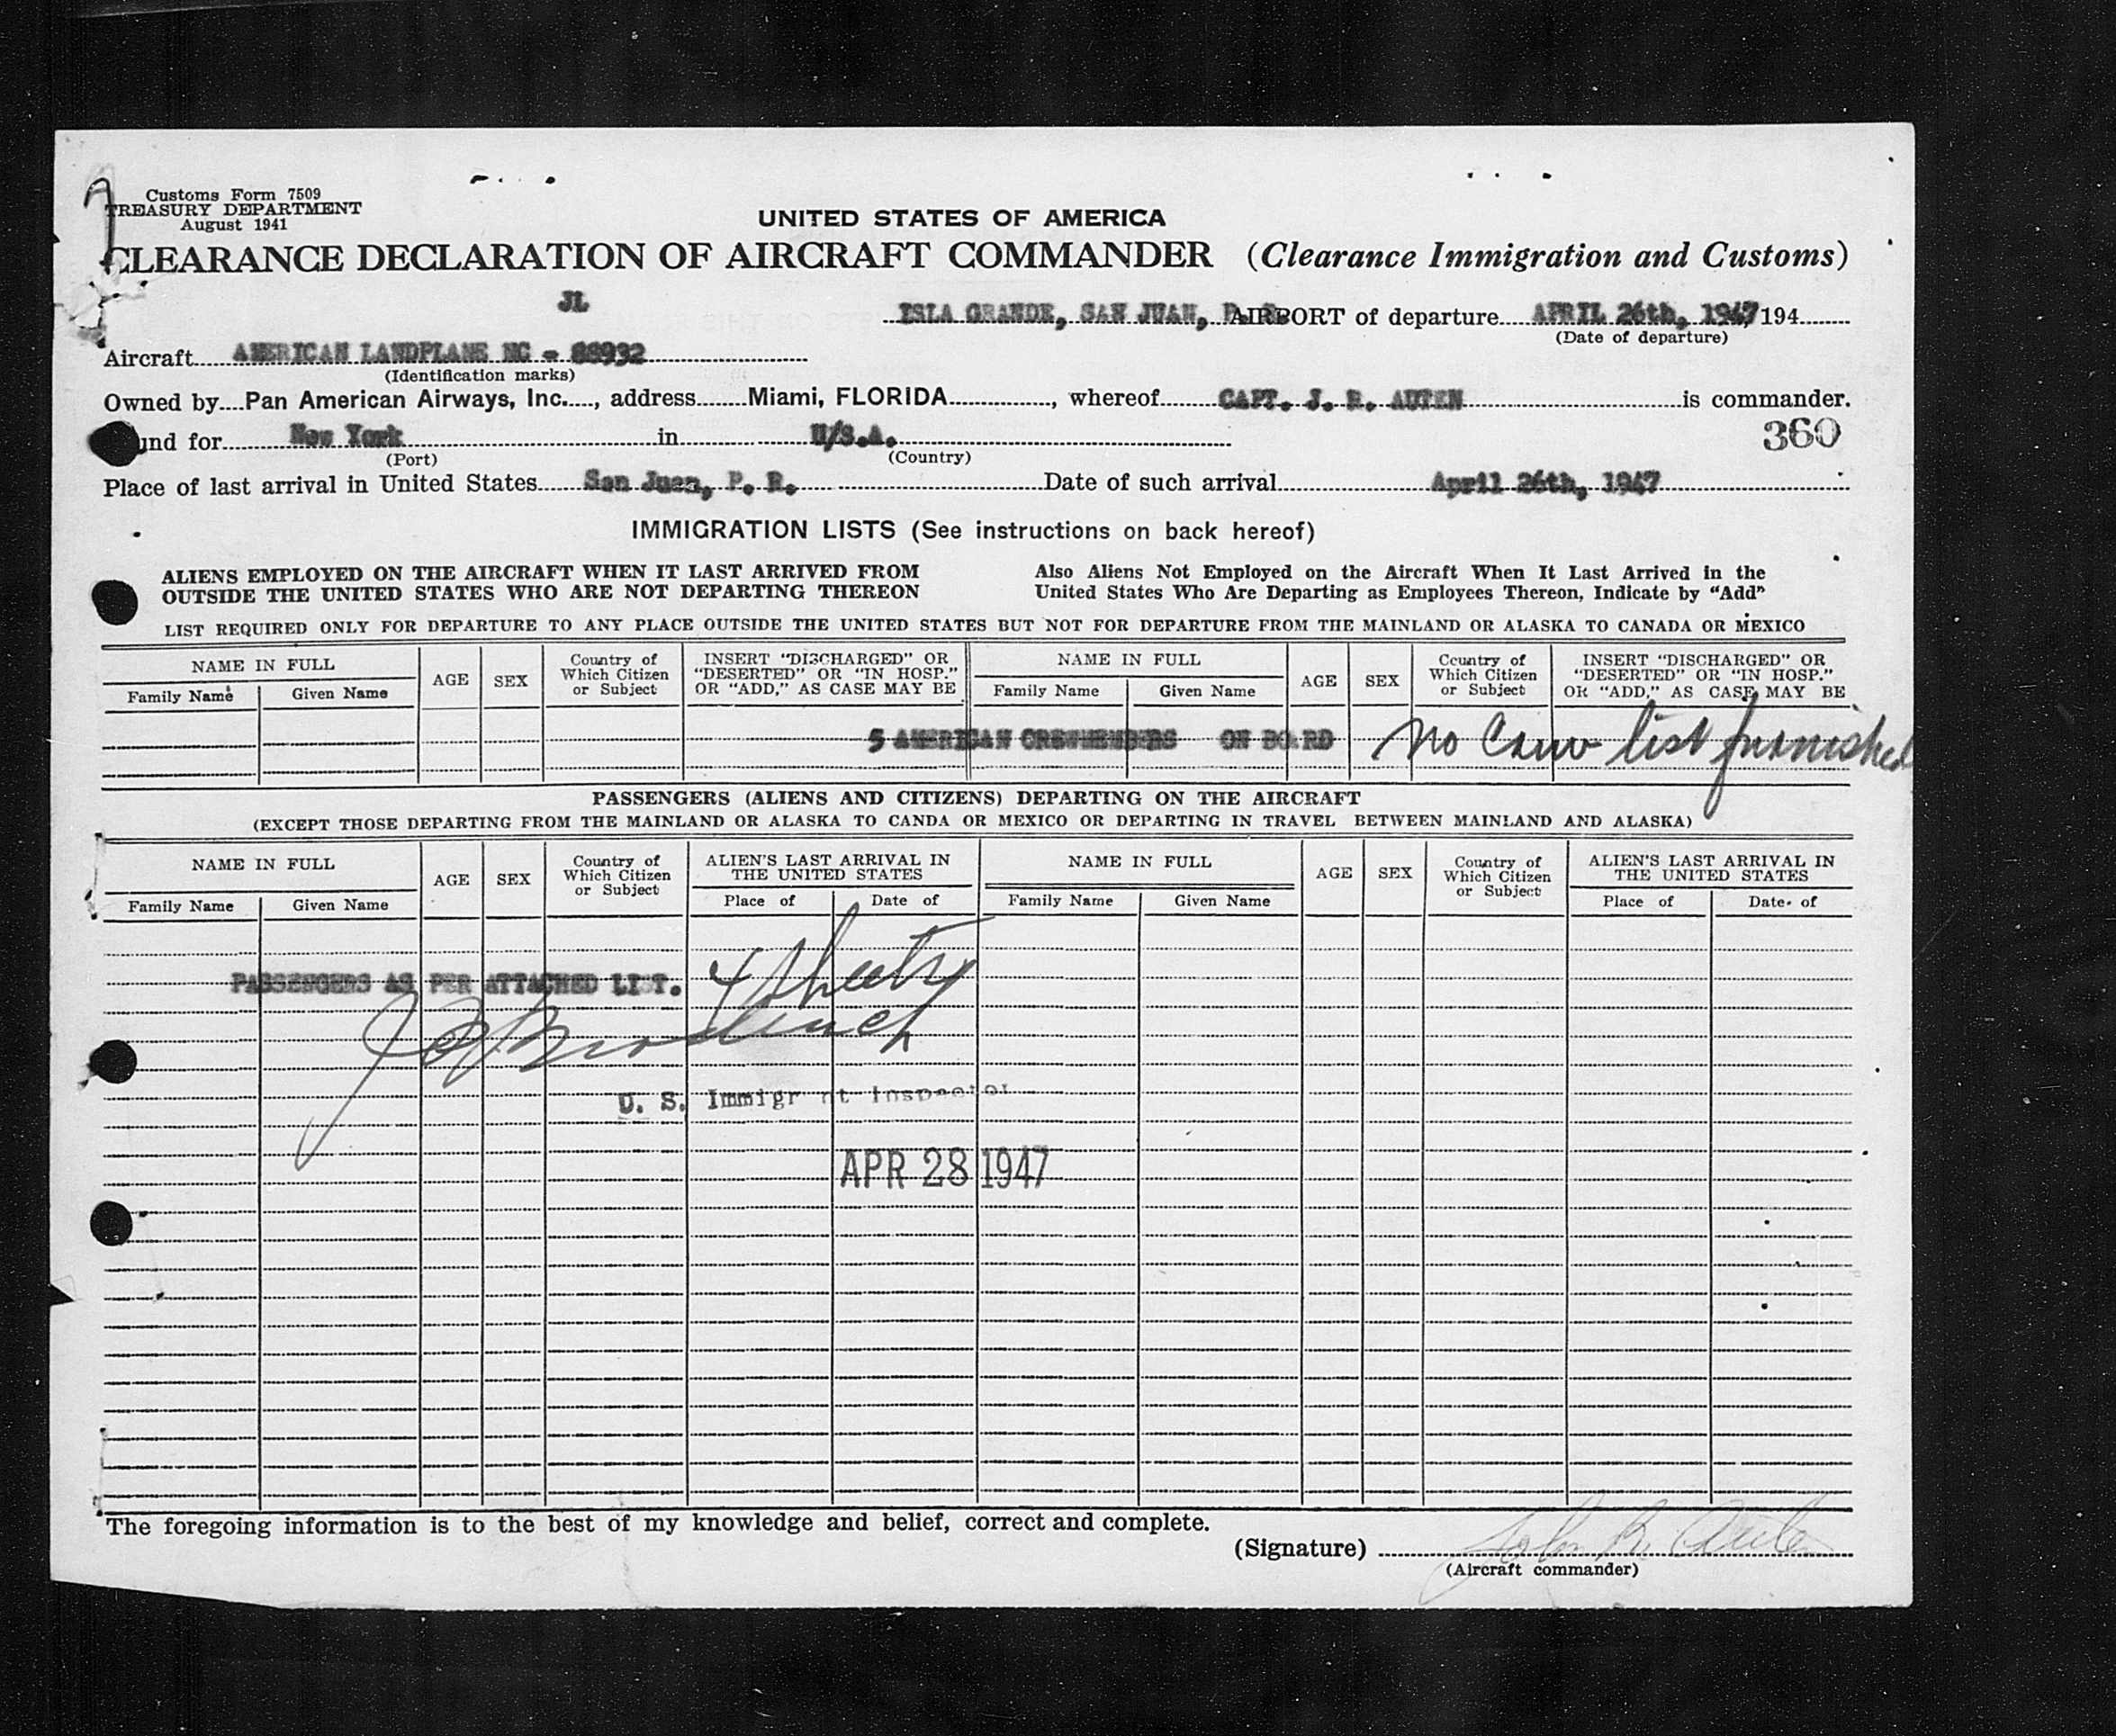 Customs Form 7509
TREASURY DEPARTMENT
August 1941
UNITED STATES OF AMERICA
CLEARANCE DECLARATION OF AIRCRAFT COMMANDER (Clearance Immigration and Customs)
JL
ISLA GRANDE, SAN JUAN, P. R. AIRPORT of departure APRIL 26th, 1947, 194
(Date of departure)
Aircraft AMERICAN LANDPLANE NC - 88932
(Identification marks)
Owned by Pan American Airways, Inc., address Miami, FLORIDA, whereof CAPT. J. R. AUTEN is commander.
und for New York in U/S.A. 360
(Port) (Country)
Place of last arrival in United States San Juan, P. R. Date of such arrival April 26th, 1947
IMMIGRATION LISTS (See instructions on back hereof)
ALIENS EMPLOYED ON THE AIRCRAFT WHEN IT LAST ARRIVED FROM OUTSIDE THE UNITED STATES WHO ARE NOT DEPARTING THEREON
Also Aliens Not Employed on the Aircraft When It Last Arrived in the United States Who Are Departing as Employees Thereon, Indicate by “Add”
LIST REQUIRED ONLY FOR DEPARTURE TO ANY PLACE OUTSIDE THE UNITED STATES BUT NOT FOR DEPARTURE FROM THE MAINLAND OR ALASKA TO CANADA OR MEXICO
NAME IN FULL AGE SEX Country of Which Citizen or Subject INSERT “DISCHARGED” OR “DESERTED” OR “IN HOSP.” OR “ADD,” AS CASE MAY BE NAME IN FULL AGE SEX Country of Which Citizen or Subject INSERT “DISCHARGED” OR “DESERTED” OR “IN HOSP.” OR “ADD,” AS CASE MAY BE
Family Name Given Name Family Name Given Name
5 AMERICAN CREWMEMBERS ON BOARD No Crew list furnished
PASSENGERS (ALIENS AND CITIZENS) DEPARTING ON THE AIRCRAFT
(EXCEPT THOSE DEPARTING FROM THE MAINLAND OR ALASKA TO CANDA OR MEXICO OR DEPARTING IN TRAVEL BETWEEN MAINLAND AND ALASKA)
NAME IN FULL AGE SEX Country of Which Citizen or Subject ALIEN'S LAST ARRIVAL IN THE UNITED STATES NAME IN FULL AGE SEX Country of Which Citizen or Subject ALIEN'S LAST ARRIVAL IN THE UNITED STATES
Family Name Given Name Place of Date of Family Name Given Name Place of Date of
PASSENGERS AS PER ATTACHED LIST. 4 Sheets
U. S. Immigr nt Inspector
APR 28 1947
The foregoing information is to the best of my knowledge and belief, correct and complete.
(Signature) John R. Auten
(Aircraft commander)